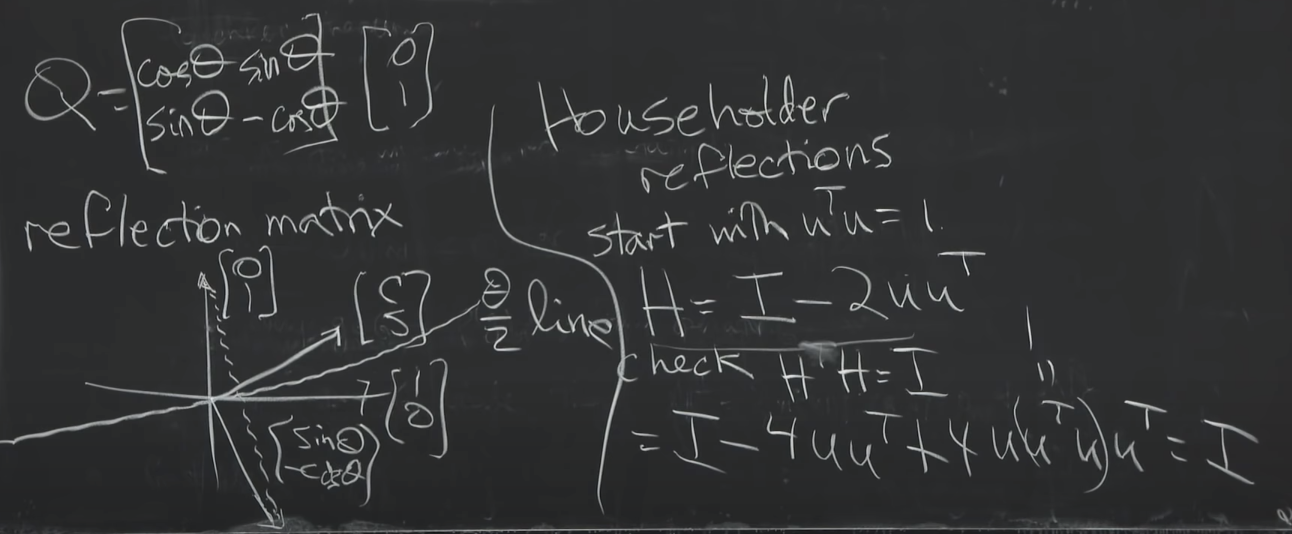 Q = [cosθ sinθ
sinθ -cosθ] [0
1]
reflection matrix
[0
1]
[c
s]
θ/2 line
[1
0]
[sinθ
-cosθ]
Householder
reflections
start with uᵀu = 1.
H = I - 2uuᵀ
check HᵀH = I
1
"
= I - 4uuᵀ + 4u(uᵀu)uᵀ = I